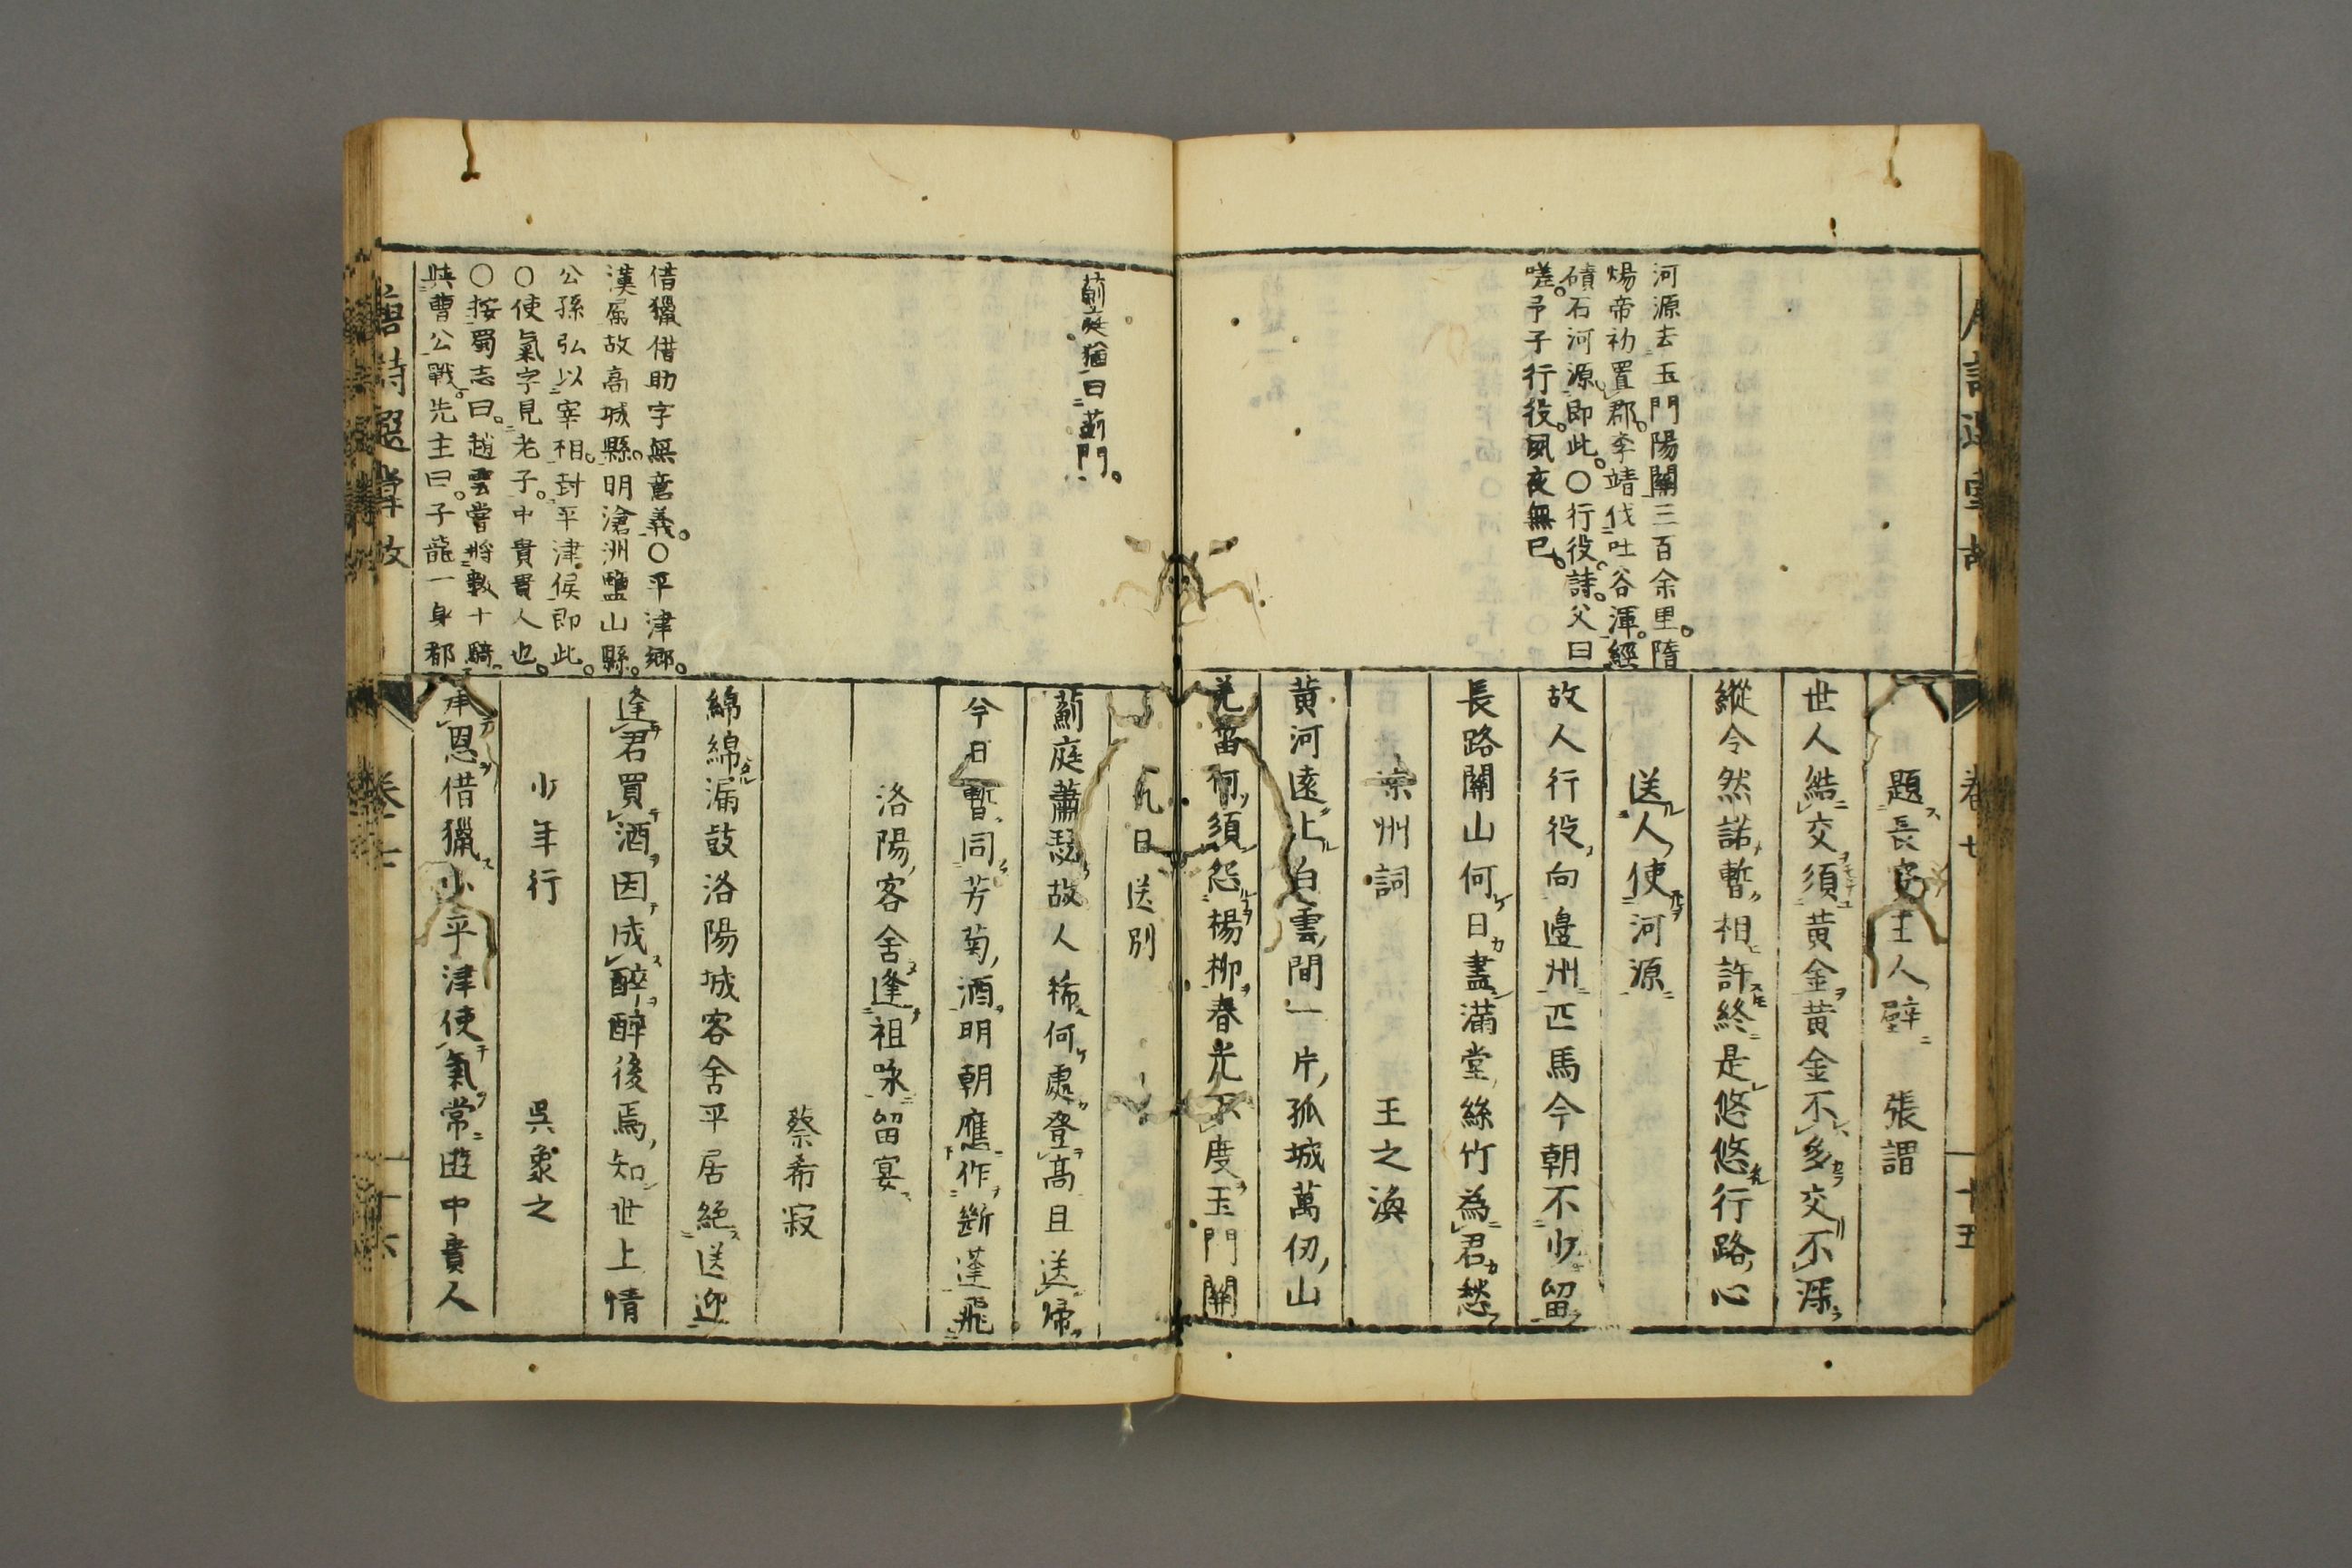 河源去玉門陽關三百余里隋
煬帝初置郡李靖伐吐谷渾經
磧石河源即此〇行役詩父曰
嗟予子行役夙夜無已
卷七
十五
題長安主人壁 張謂
世人結交須黃金黃金不多交不深
縱令然諾暫相許終是悠悠行路心
送人使河源
故人行役向邊州匹馬今朝不少留
長路關山何日盡滿堂絲竹為君愁
涼州詞 王之渙
黃河遠上白雲間一片孤城萬仞山
羌笛何須怨楊柳春光不度玉門關
薊庭猶曰薊門
借獵借助字無意義〇平津鄉
漢屬故高城縣明滄洲鹽山縣
公孫弘以宰相封平津侯即此
〇使氣字見老子中貴貴人也
〇按蜀志曰趙雲嘗將數十騎
與曹公戰先主曰子龍一身都
九日送別
薊庭蕭瑟故人稀何處登高且送歸
今日暫同芳菊酒明朝應作斷蓬飛
洛陽客舍逢祖咏留宴
蔡希寂
綿綿漏鼓洛陽城客舍平居絕送迎
逢君買酒因成醉醉後焉知世上情
少年行 吳象之
承恩借獵小平津使氣常遊中貴人
唐詩選掌故
卷七
十六